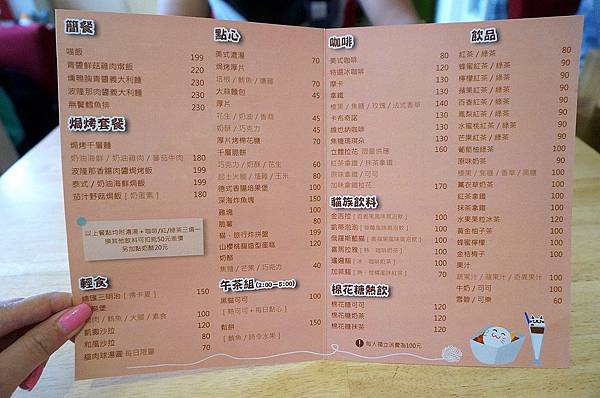 簡餐
喵飯 199
青醬鮮菇雞肉燉飯 220
燻鴨胸青醬義大利麵 230
波隆那肉醬義大利麵 230
無餐鱈魚排 230
焗烤套餐
焗烤千層麵
奶油海鮮 / 奶油雞肉 / 蕃茄牛肉 180
波隆那香腸肉醬焗烤飯 199
泰式 / 奶油海鮮焗飯 199
茄汁野菇焗飯 [ 奶蛋素 ] 180
以上餐點均附濃湯+咖啡/紅/綠茶三選一
換其他飲料可扣抵50元差價
另加點奶酪20元
輕食
總匯三明治 [ 佛卡夏 ] 150
100
肉 / 鮪魚 / 火腿 / 素食
凱撒沙拉 120
和風沙拉 80
貓肉球湯圓 每日限量 70
點心
美式濃湯 70
焗烤厚片
培根 / 鮪魚 / 燻雞 60
大蒜麵包 45
厚片
花生 / 奶油 / 香蒜 45
奶酥 / 巧克力 45
厚片烤棉花糖 70
千層脆餅
巧克力 / 奶酥 / 花生 60
起士火腿 / 燻雞 / 玉米 80
德式香腸培果堡 100
深海炸魚塊 150
雞塊 100
脆薯 80
貓、旅行炸拼盤 199
山櫻桃貓造型蛋糕 120
奶酪
焦糖 / 芒果 / 巧克力 40
午茶組(2:00~5:00)
黑貓可可 100
[ 熱可可+每日點心 ]
鬆餅 150
[ 鮪魚 / 時令水果 ]
咖啡
美式咖啡 80
特選冰咖啡 120
摩卡 130
拿鐵 120
榛果 / 焦糖 / 玫瑰 / 法式香草 140
卡布奇諾 130
維也納咖啡 130
焦糖瑪琪朵 130
立體拉花 限量供應 160
紅茶拿鐵 / 抹茶拿鐵 130
原味可可 / 可可 130
加味拿鐵拉花 170
貓族飲料
金吉拉 100
凱蒂泡泡 100
俄羅斯藍貓 100
喜馬拉雅 120
暹邏貓 120
加菲貓 120
棉花糖熱飲
棉花糖可可 120
棉花糖奶茶 120
棉花糖抹茶 120
每人獨立消費為100元
飲品
紅茶 / 綠茶 80
蜂蜜紅茶 / 綠茶 90
檸檬紅茶 / 綠茶 90
蘋果紅茶 / 綠茶 90
百香紅茶 / 綠茶 90
鳳梨紅茶 / 綠茶 90
水蜜桃紅茶 / 綠茶 90
芒果紅茶 / 綠茶 90
葡萄柚綠茶 100
原味奶茶 90
榛果 / 焦糖 / 香草 / 黑糖 100
薰衣草奶茶 100
紅茶拿鐵 100
抹茶拿鐵 100
水果果粒冰茶 120
黃金柚子茶 100
蜂蜜檸檬 100
金桔梅子 100
果汁
蔬果汁 / 蘋果汁 / 奇異果汁 100
牛奶 / 可可 100
雪碧 / 可樂 60